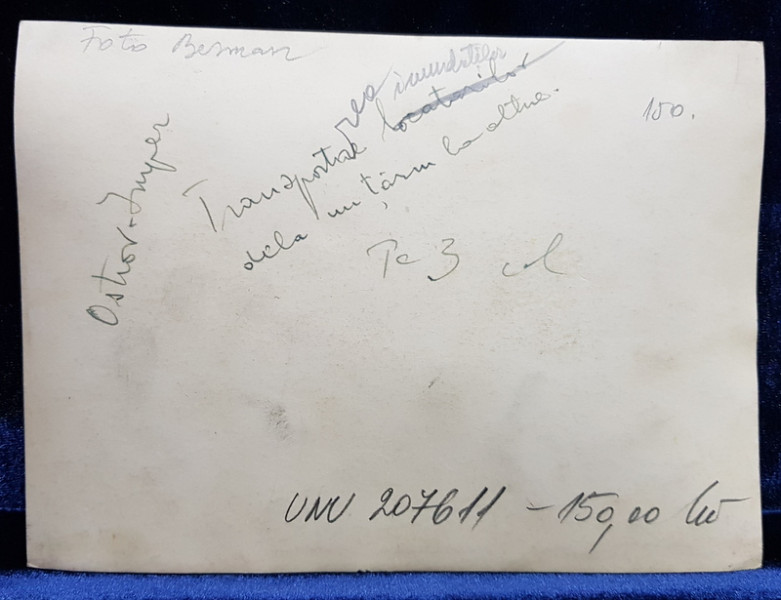 Foto Berman
150.
Ostrov-Imper
inundatilor
Transportarea locatarilor
dela un țărm la altul.
Pe 3 col
UNU 207611 - 150,00 lei